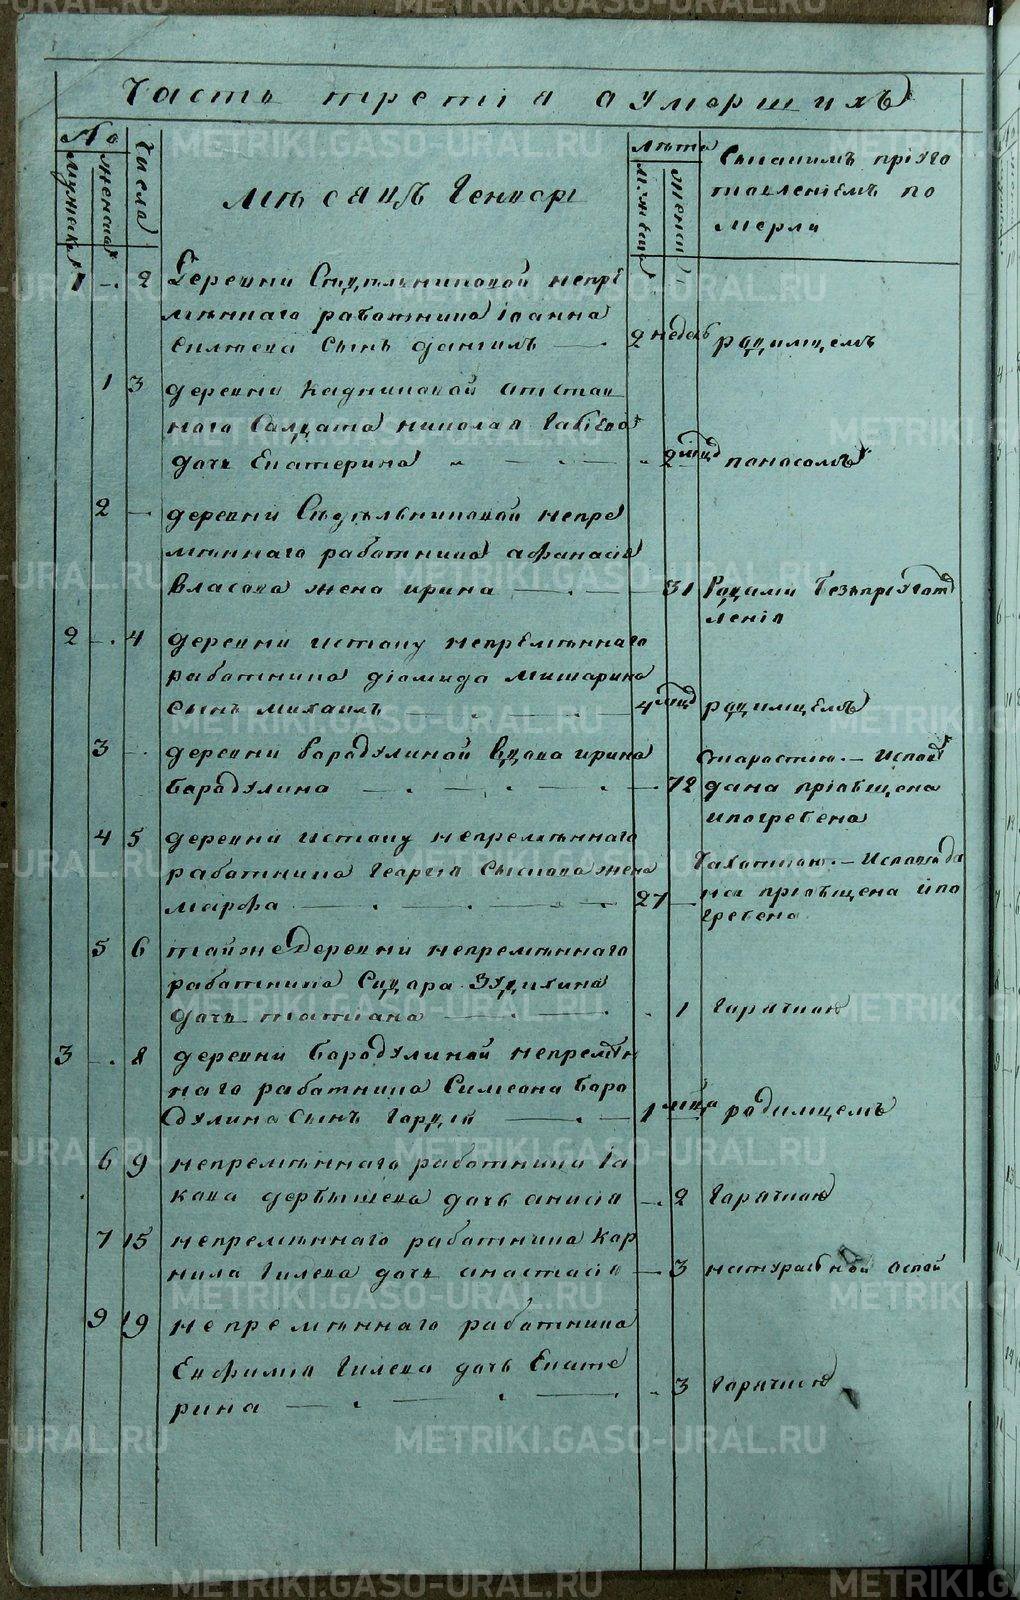 Часть третія оумершихъ
№
мужеска
женска
Числа
Мѣсяцъ Генваръ
лѣта
м: жеща
женск
Съкакимъ пріуго
товленіемъ по
мерли
1 - 2 Деревни Сѣдѣльниковой непрѣ
мѣннаго работника Іоанна
сынъ даніилъ — 2 недель родимцемъ
1 3 деревни Кадниковой отстав
наго Салдата николая
дочь Екатерина — 2 мцд поносомъ
2 — деревни Сѣдѣльниковой непре
мѣннаго работника афанасія
власова жена ирина — 31 Родами безъпріугот
ленія
2 - 4 деревни истоку непремѣннаго
работника діомида мишарина
сынъ михаилъ — 4 мцд родимцемъ
3 - деревни бородулиной вдова ирина
бородулина — 72 Старостію. — Испов
дана пріобщена
ипогребена
4 5 деревни истоку непремѣннаго
работника Георгія Сысцова жена
марфа — 27 — Чахоткою. — Исповѣда
на пріобщена ипо
гребена
5 6 тойже деревни непремѣннаго
работника Сидора Зудихина
дочь татіана — 1 Горячкою
3 - 8 деревни бородулиной непремѣн
наго работника Симеона боро
дулина сынъ Гордій — 1 мцда родимцемъ
6 9 непремѣннаго работника Іа
кова дербышева дочь анисія — 2 Горячкою
7 15 непремѣннаго работника Кор
нила Гилева дочь анастасія — 3 натуральной Оспой
9 19 непремѣннаго работника
Евфимія Гилева дочь Екате
рина — 3 Горячкою
METRIKI.GASO-URAL.RU